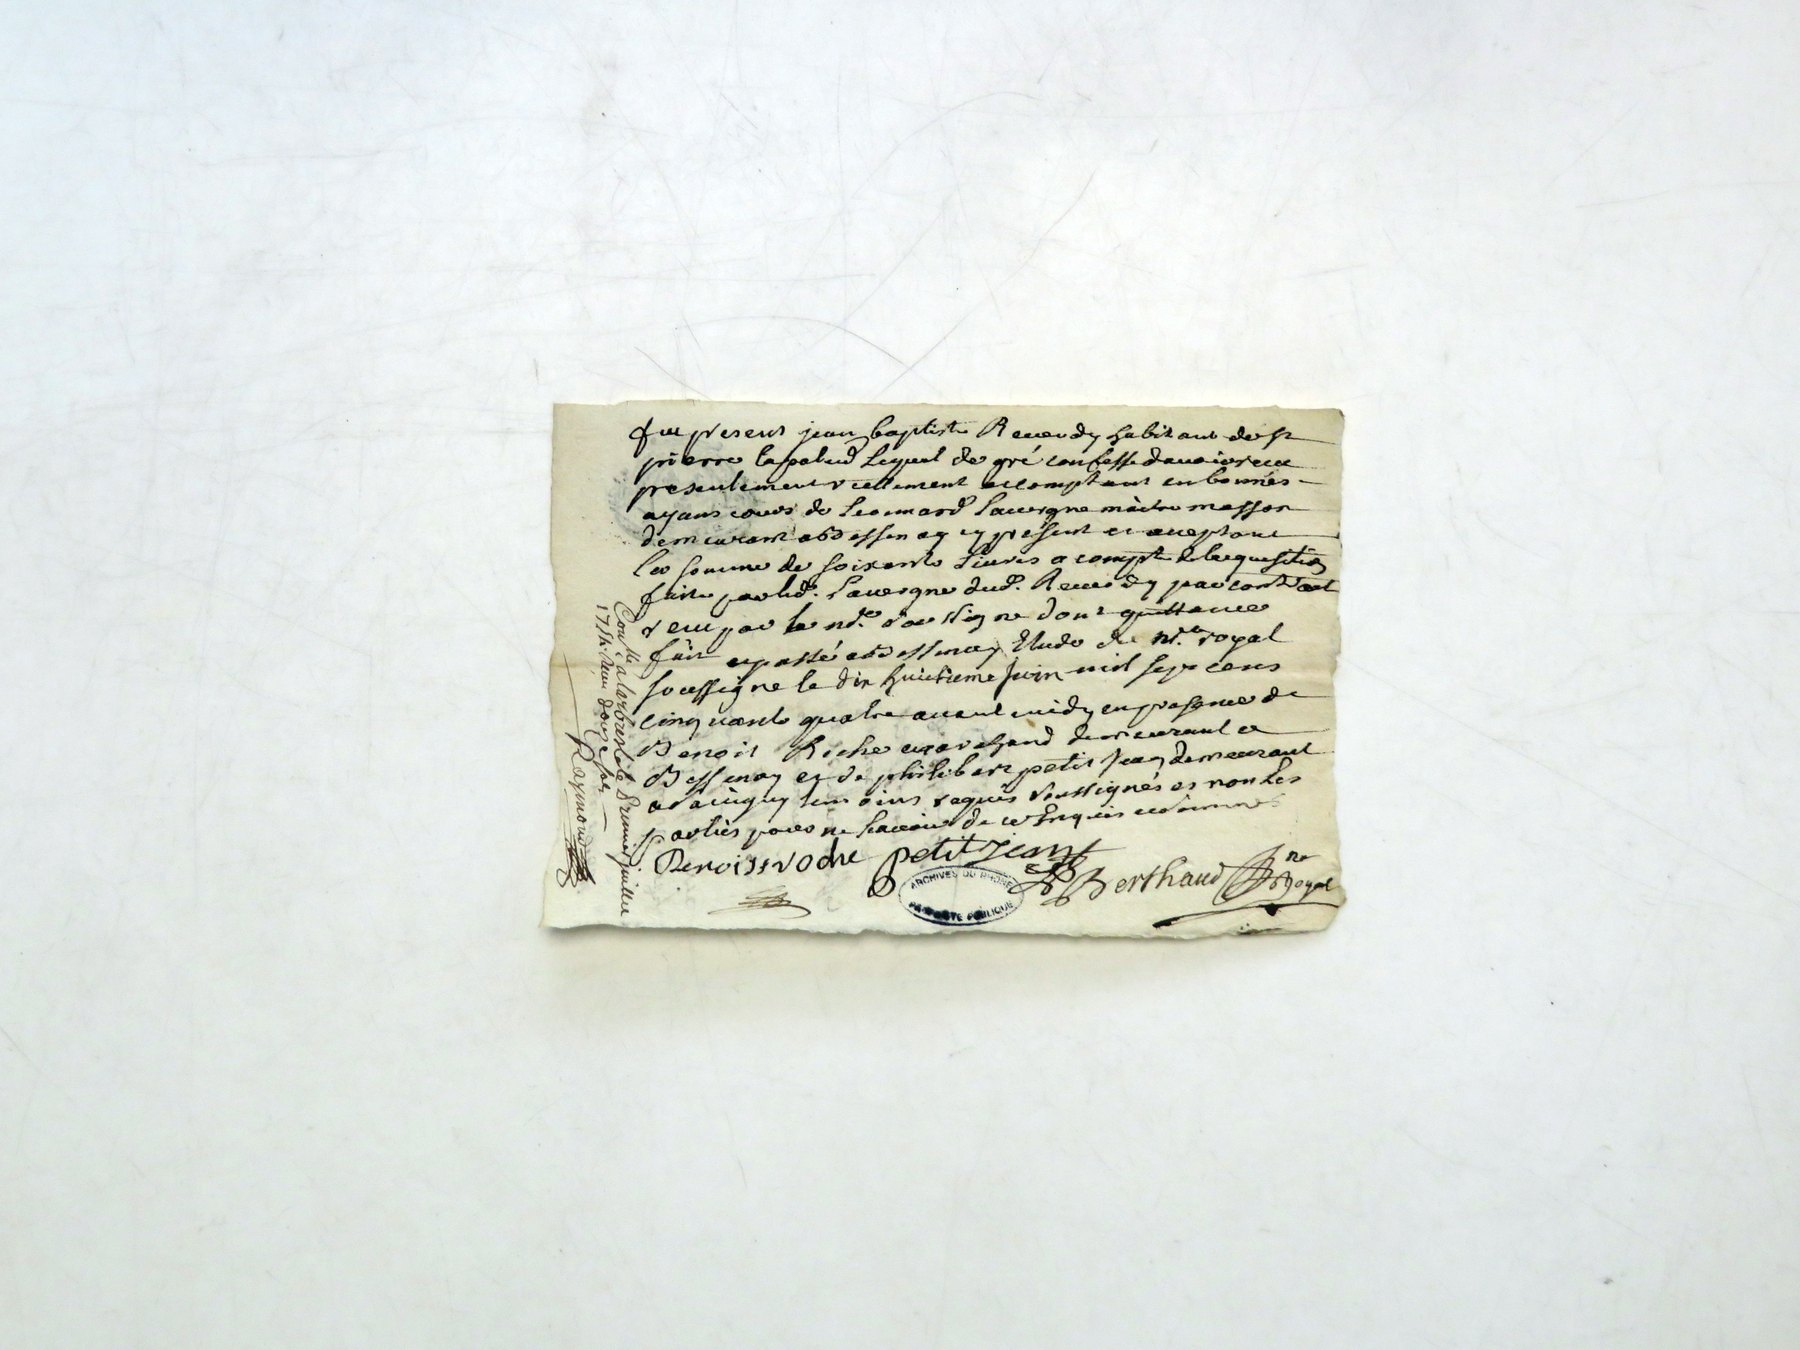 fut present jean baptiste Reverdy habitant de st
pierre lapalud Lequel de gré confesse davoir receu
presentement reellement et comptant en bonnes
ayant cours de Leonnard Lauvergne maitre masson
demeurant a Bessenay cy présent et aceptant
la somme de soixante Livres a compte de laquisition
faite par led. Lauvergne dud. Reverdy par contract
receu par le nre. soussigne dont quittance
fait et passé a Bessenay Etude du nre. royal
soussigne le dix huictieme juin mil sept cens
cinquante quatre avant midy en presence de
Benoit Roche marchand demeurant a
Bessenay et de philibert petit jean demeurant
a temoins requis soussignés et non les
parties pour ne sçavoir de ce Enquis et sommes
Benoist roche petit jean
Berthaud nre Royal
Con.lle a larbresle le Premier juillet
1754. Reçu douze sols
Raymond
ARCHIVES DU RHONE
PROPRIETE PUBLIQUE